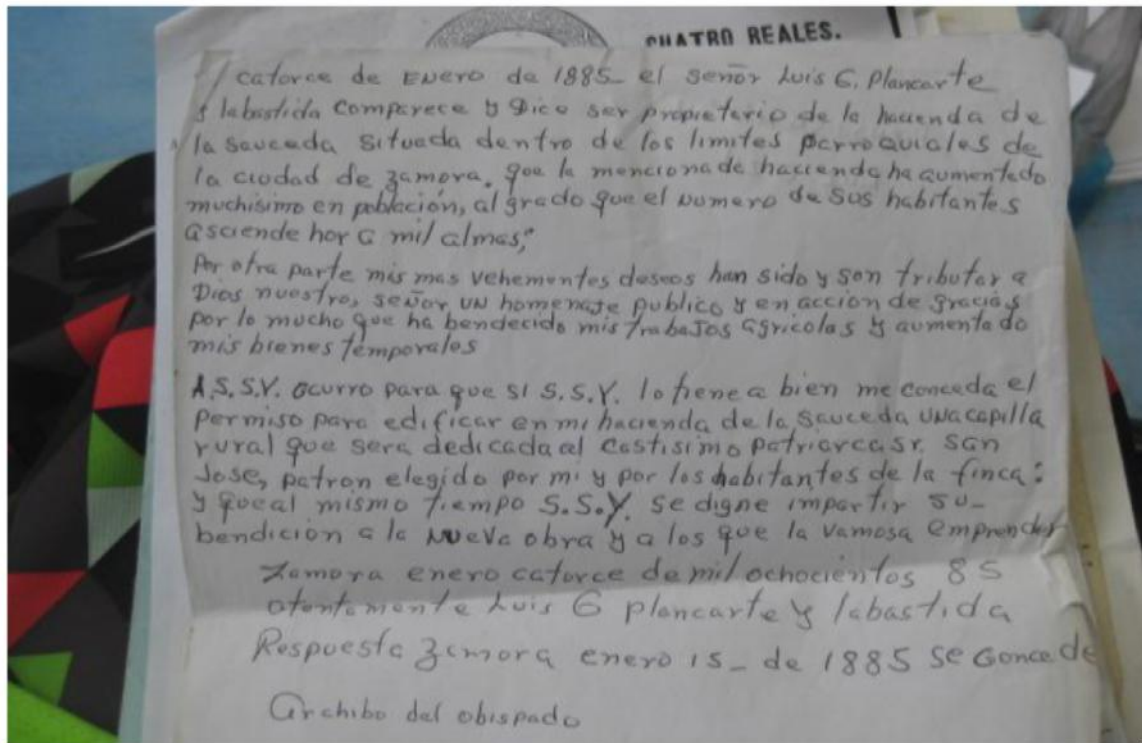 CUATRO REALES.
catorce de ENero de 1885_ el señor Luis G. Plancarte
y labastida comparece y Dice ser propietario de la hacienda de
la sauceda situada dentro de los limites parroquiales de
la ciudad de zamora. que la mencionada hacienda ha aumentado
muchisimo en población, al grado que el Numero de sus habitantes
asciende hor a mil almas,"
Por otra parte mis mas vehementes deseos han sido y son tributar a
Dios nuestro, señor uN homenaje publico y en acción de gracias
por lo mucho que ha bendecido mis trabajos agricolas y aumentado
mis bienes temporales
A.S.S.Y. ocurro para que si S.S.Y. lo tiene a bien me conceda el
permiso para edificar en mi hacienda de la sauceda uNa capilla
rural que sera dedicada al castisimo patriarca sr. san
Jose, patron elegido por mi y por los habitantes de la finca:
y que al mismo tiempo S.S.Y. se digne impartir su_
bendición a la Nueva obra y a los que la vamosa emprender
Zamora enero catorce de mil ochocientos 85
atentamente Luis G plancarte y labastida
Respuesta zamora enero 15_ de 1885 se Concede
Archibo del obispado